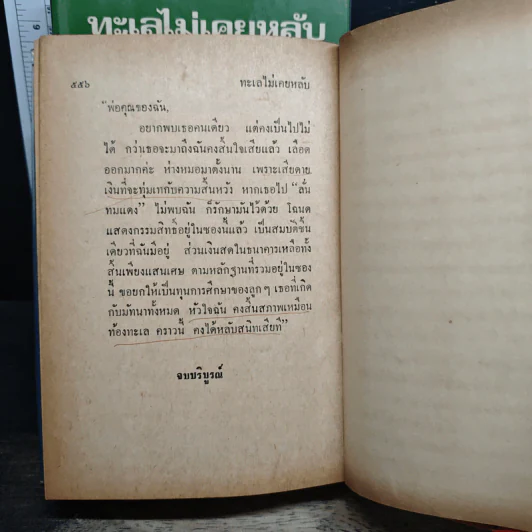 ทะเลไม่เคยหลับ
๕๕๖
ทะเลไม่เคยหลับ
"พ่อคุณของฉัน,
อยากพบเธอคนเดียว แต่คงเป็นไปไม่
ได้ กว่าเธอจะมาถึงฉันคงสิ้นใจเสียแล้ว เลือด
ออกมากค่ะ ห่างหมอมาตั้งนาน เพราะเสียดาย
เงินที่จะทุ่มเทกับความสิ้นหวัง หากเธอไป "ลั่น
ทมแดง" ไม่พบฉัน ก็รักษามันไว้ด้วย โฉนด
แสดงกรรมสิทธิ์อยู่ในซองนี้แล้ว เป็นสมบัติชิ้น
เดียวที่ฉันมีอยู่ ส่วนเงินสดในธนาคารเหลือทั้ง
สิ้นเพียงแสนเศษ ตามหลักฐานที่รวมอยู่ในซอง
นี้ ขอยกให้เป็นทุนการศึกษาของลูก ๆ เธอที่เกิด
กับมัทนาทั้งหมด หัวใจฉัน คงสิ้นสภาพเหมือน
ท้องทะเล คราวนี้ คงได้หลับสนิทเสียที"
จบบริบูรณ์